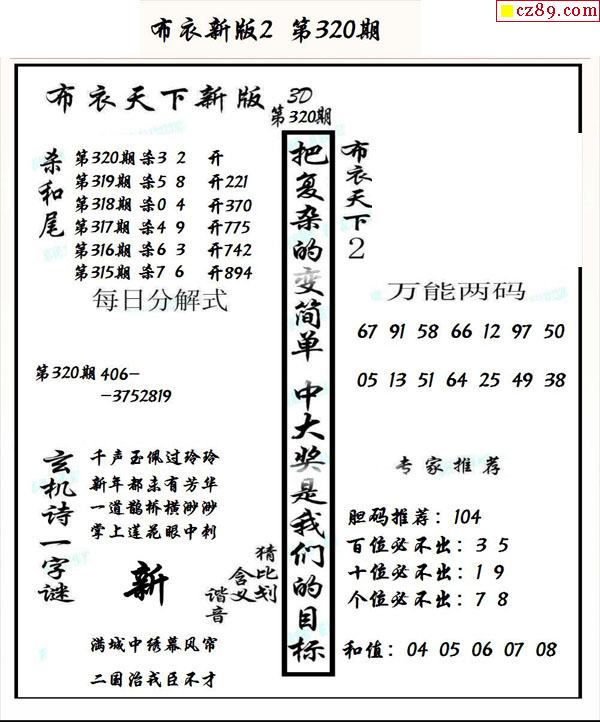 cz89.com
布衣新版2 第320期
布衣天下新版
3D
第320期
杀和尾
第320期 杀3 2 开
第319期 杀5 8 开221
第318期 杀0 4 开370
第317期 杀4 9 开775
第316期 杀6 3 开742
第315期 杀7 6 开894
每日分解式
第320期 406-
-3752819
玄机诗一字谜
千声玉佩过玲玲
新年都未有芳华
一道鹊桥横渺渺
掌上莲花眼中刺
新
猜比划
含义
谐音
满城中绣幕风帘
二国治戎臣不才
把复杂的变简单 中大奖是我们的目标
布衣天下2
万能两码
67 91 58 66 12 97 50
05 13 51 64 25 49 38
专家推荐
胆码推荐：104
百位必不出：3 5
十位必不出：1 9
个位必不出：7 8
和值：04 05 06 07 08